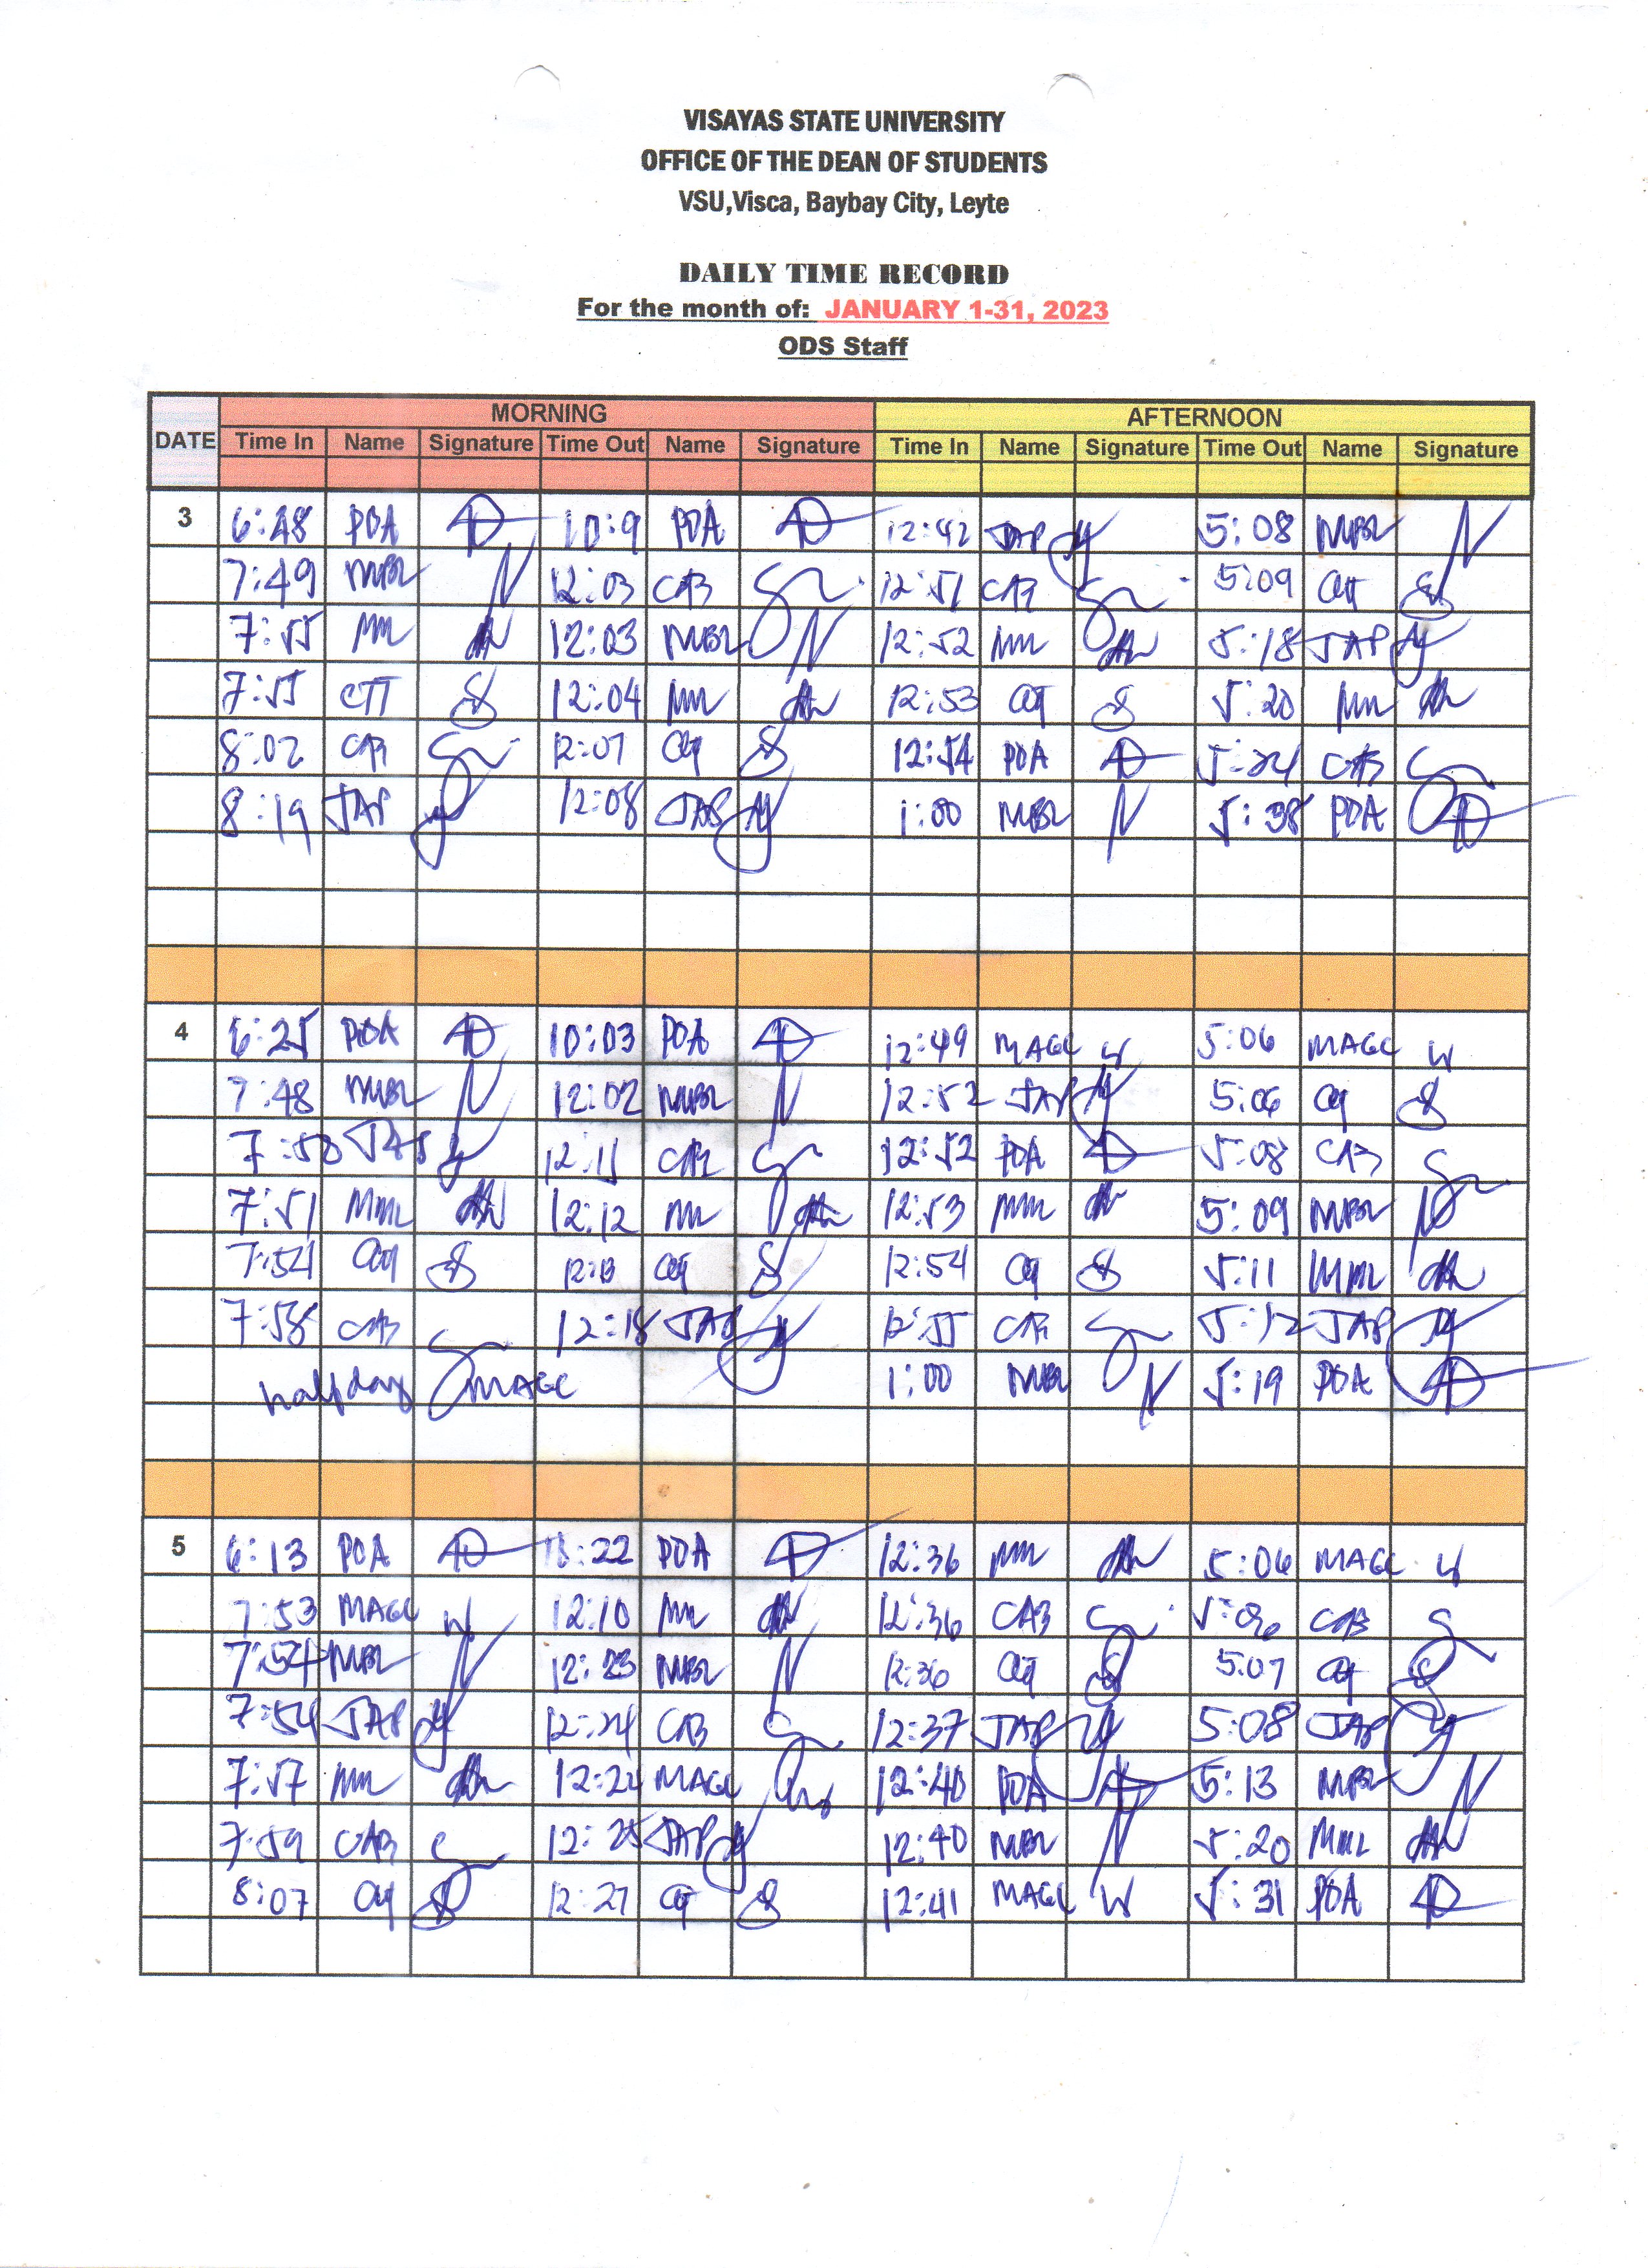 VISAYAS STATE UNIVERSITY
OFFICE OF THE DEAN OF STUDENTS
VSU,Visca, Baybay City, Leyte
DAILY TIME RECORD
For the month of: JANUARY 1-31, 2023
ODS Staff
MORNING AFTERNOON
DATE Time In Name Signature Time Out Name Signature Time In Name Signature Time Out Name Signature
3 6:48 POA 10:9 POA 12:42 JAP 5:08 MBL
7:49 MBL 12:03 CAB 12:51 CAB 5:09
7:55 MM 12:03 MBL 12:52 MM 5:18 JAP
7:55 12:04 MM 12:53 5:20 MM
8:02 CAB 12:07 12:54 POA 5:24 CAB
8:19 JAP 12:08 JAP 1:00 MBL 5:38 POA
4 6:25 POA 10:03 POA 12:49 MAGC 5:06 MAGC
7:48 MBL 12:02 MBL 12:52 JAP 5:06
7:50 JAP 12:11 CAB 12:52 POA 5:08 CAB
7:51 MML 12:12 MM 12:53 MML 5:09 MBL
7:54 12:54 5:11 MML
7:58 CAB 12:18 JAP 12:55 CAB 5:12 JAP
halfday MAGC 1:00 MBL 5:19 POA
5 6:13 POA POA 12:36 MM 5:06 MAGC
7:53 MAGC 12:10 MM 12:36 CAB 5:06 CAB
7:54 MBL 12:23 MBL 12:36 5:07
7:54 JAP 12:24 CAB 12:37 JAP 5:08 JAP
7:57 MM 12:24 MAGC 12:40 POA 5:13 MBL
7:59 CAB 12:25 JAP 12:40 MBL 5:20 MML
8:07 12:27 12:41 MAGC 5:31 POA